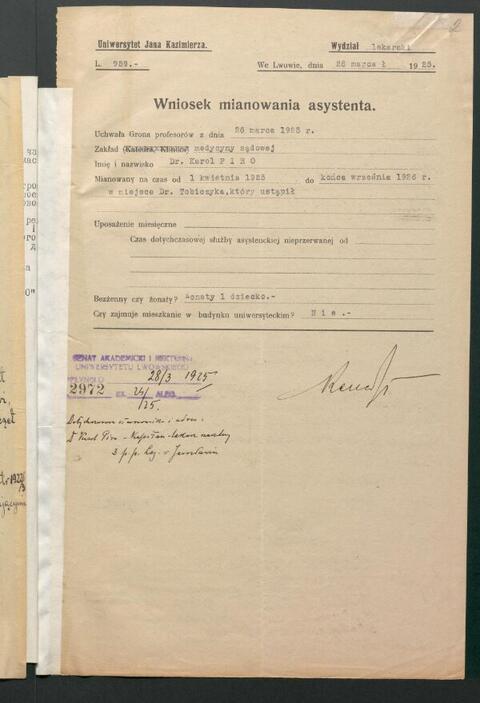 2
Uniwersytet Jana Kazimierza.
Wydział lekarski
L. 959.-
We Lwowie, dnia 28 marca 1925.
Wniosek mianowania asystenta.
Uchwała Grona profesorów z dnia 26 marca 1925 r.
Zakład (Katedra, Klinika) medycyny sądowej
Imię i nazwisko Dr. Karol PIRO
Mianowany na czas od 1 kwietnia 1925 do końca września 1926 r.
w miejsce Dr. Tobiczyka, który ustąpił
Uposażenie miesięczne
Czas dotychczasowej służby asystenckiej nieprzerwanej od
Bezżenny czy żonaty? żonaty 1 dziecko.-
Czy zajmuje mieszkanie w budynku uniwersyteckim? Nie.-
SENAT AKADEMICKI I REKTORAT
UNIWERSYTETU LWOWSKIEGO
28/3 1925
2972 EX. 24/ ALEG.
/25.
D Karol Piro - Kapitan-lekarz
3 p.p. Leg. w Jarosławiu